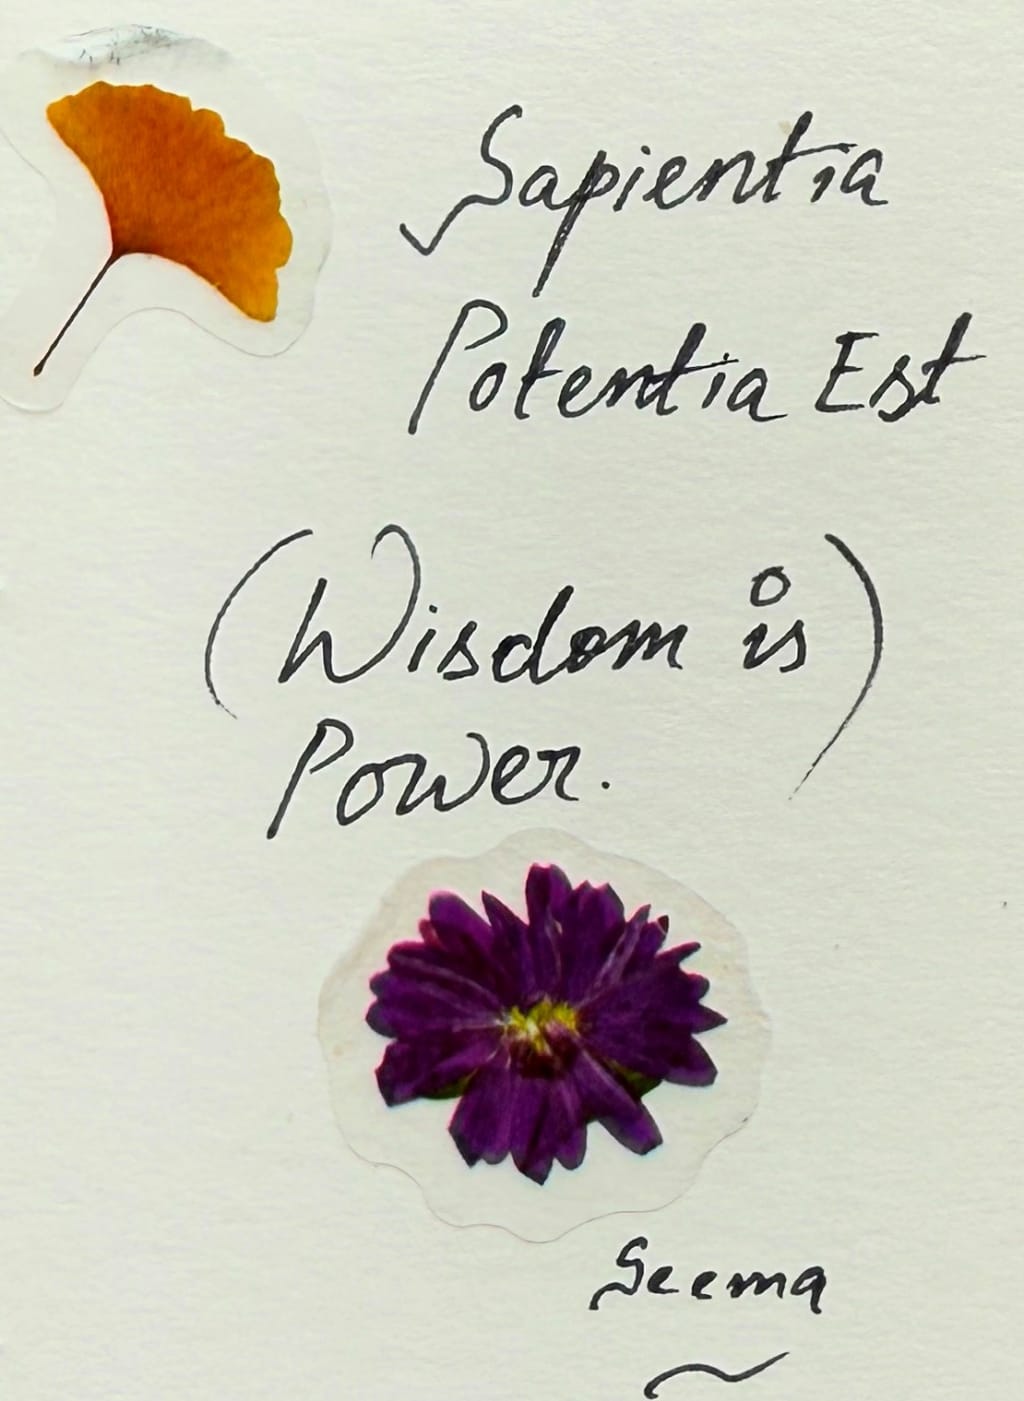 Sapientia
Potentia Est
(Wisdom is)
Power.
Seema